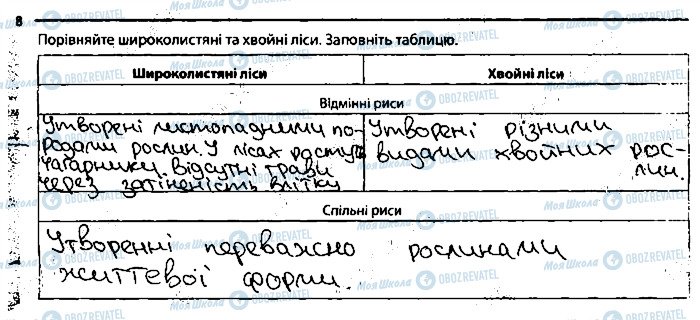 8
Порівняйте широколистяні та хвойні ліси. Заповніть таблицю.
Широколистяні ліси Хвойні ліси
Відмінні риси
Утворені листопадними по-
родами рослин. У лісах ростуть
чагарники. Відсутні трави
через затіненість влітку
Утворені різними
видами хвойних рос-
лин.
Спільні риси
Утворенні переважно рослинами
життєвої форми.
Моя Школа OBOZREVATEL